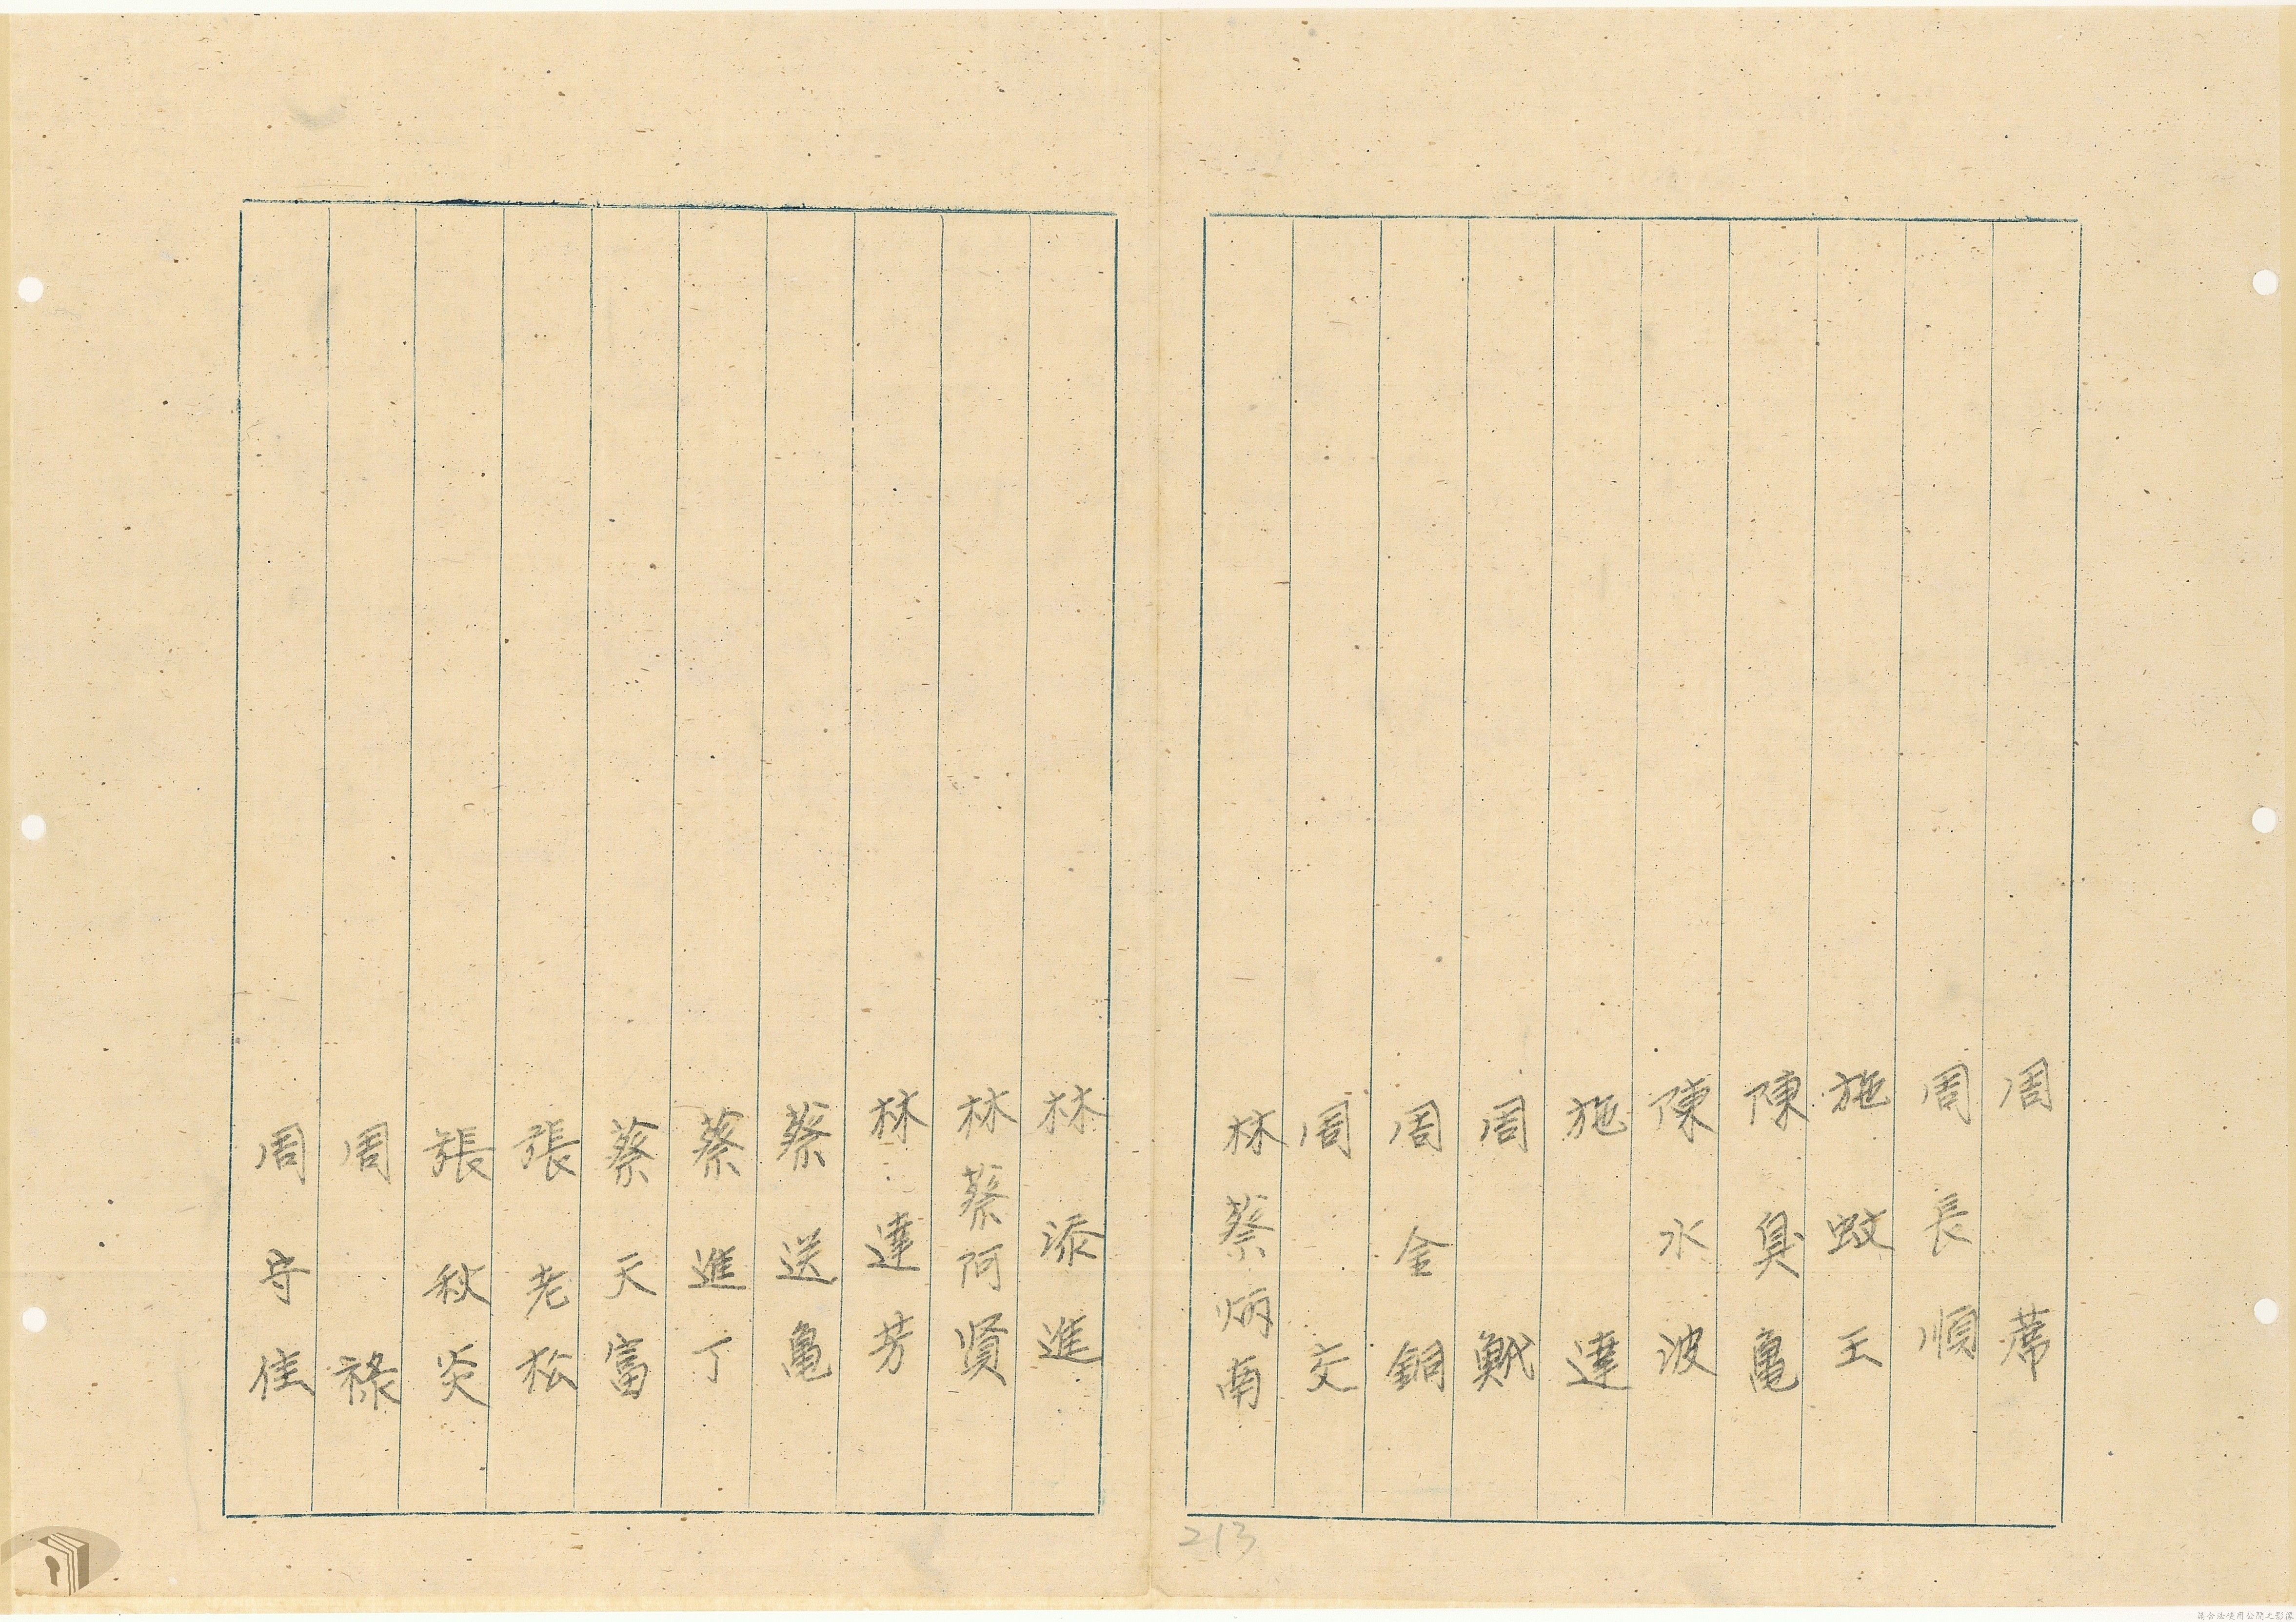 周　席
周長順
施蚊王
陳臭亀
陳水波
施　達
周　
周金銅
周　交
林蔡炳南
林添進
林蔡阿賢
林達芳
蔡送亀
蔡進丁
蔡天富
張老松
張秋炎
周　祿
周守佳
213
請合法使用公開之影像